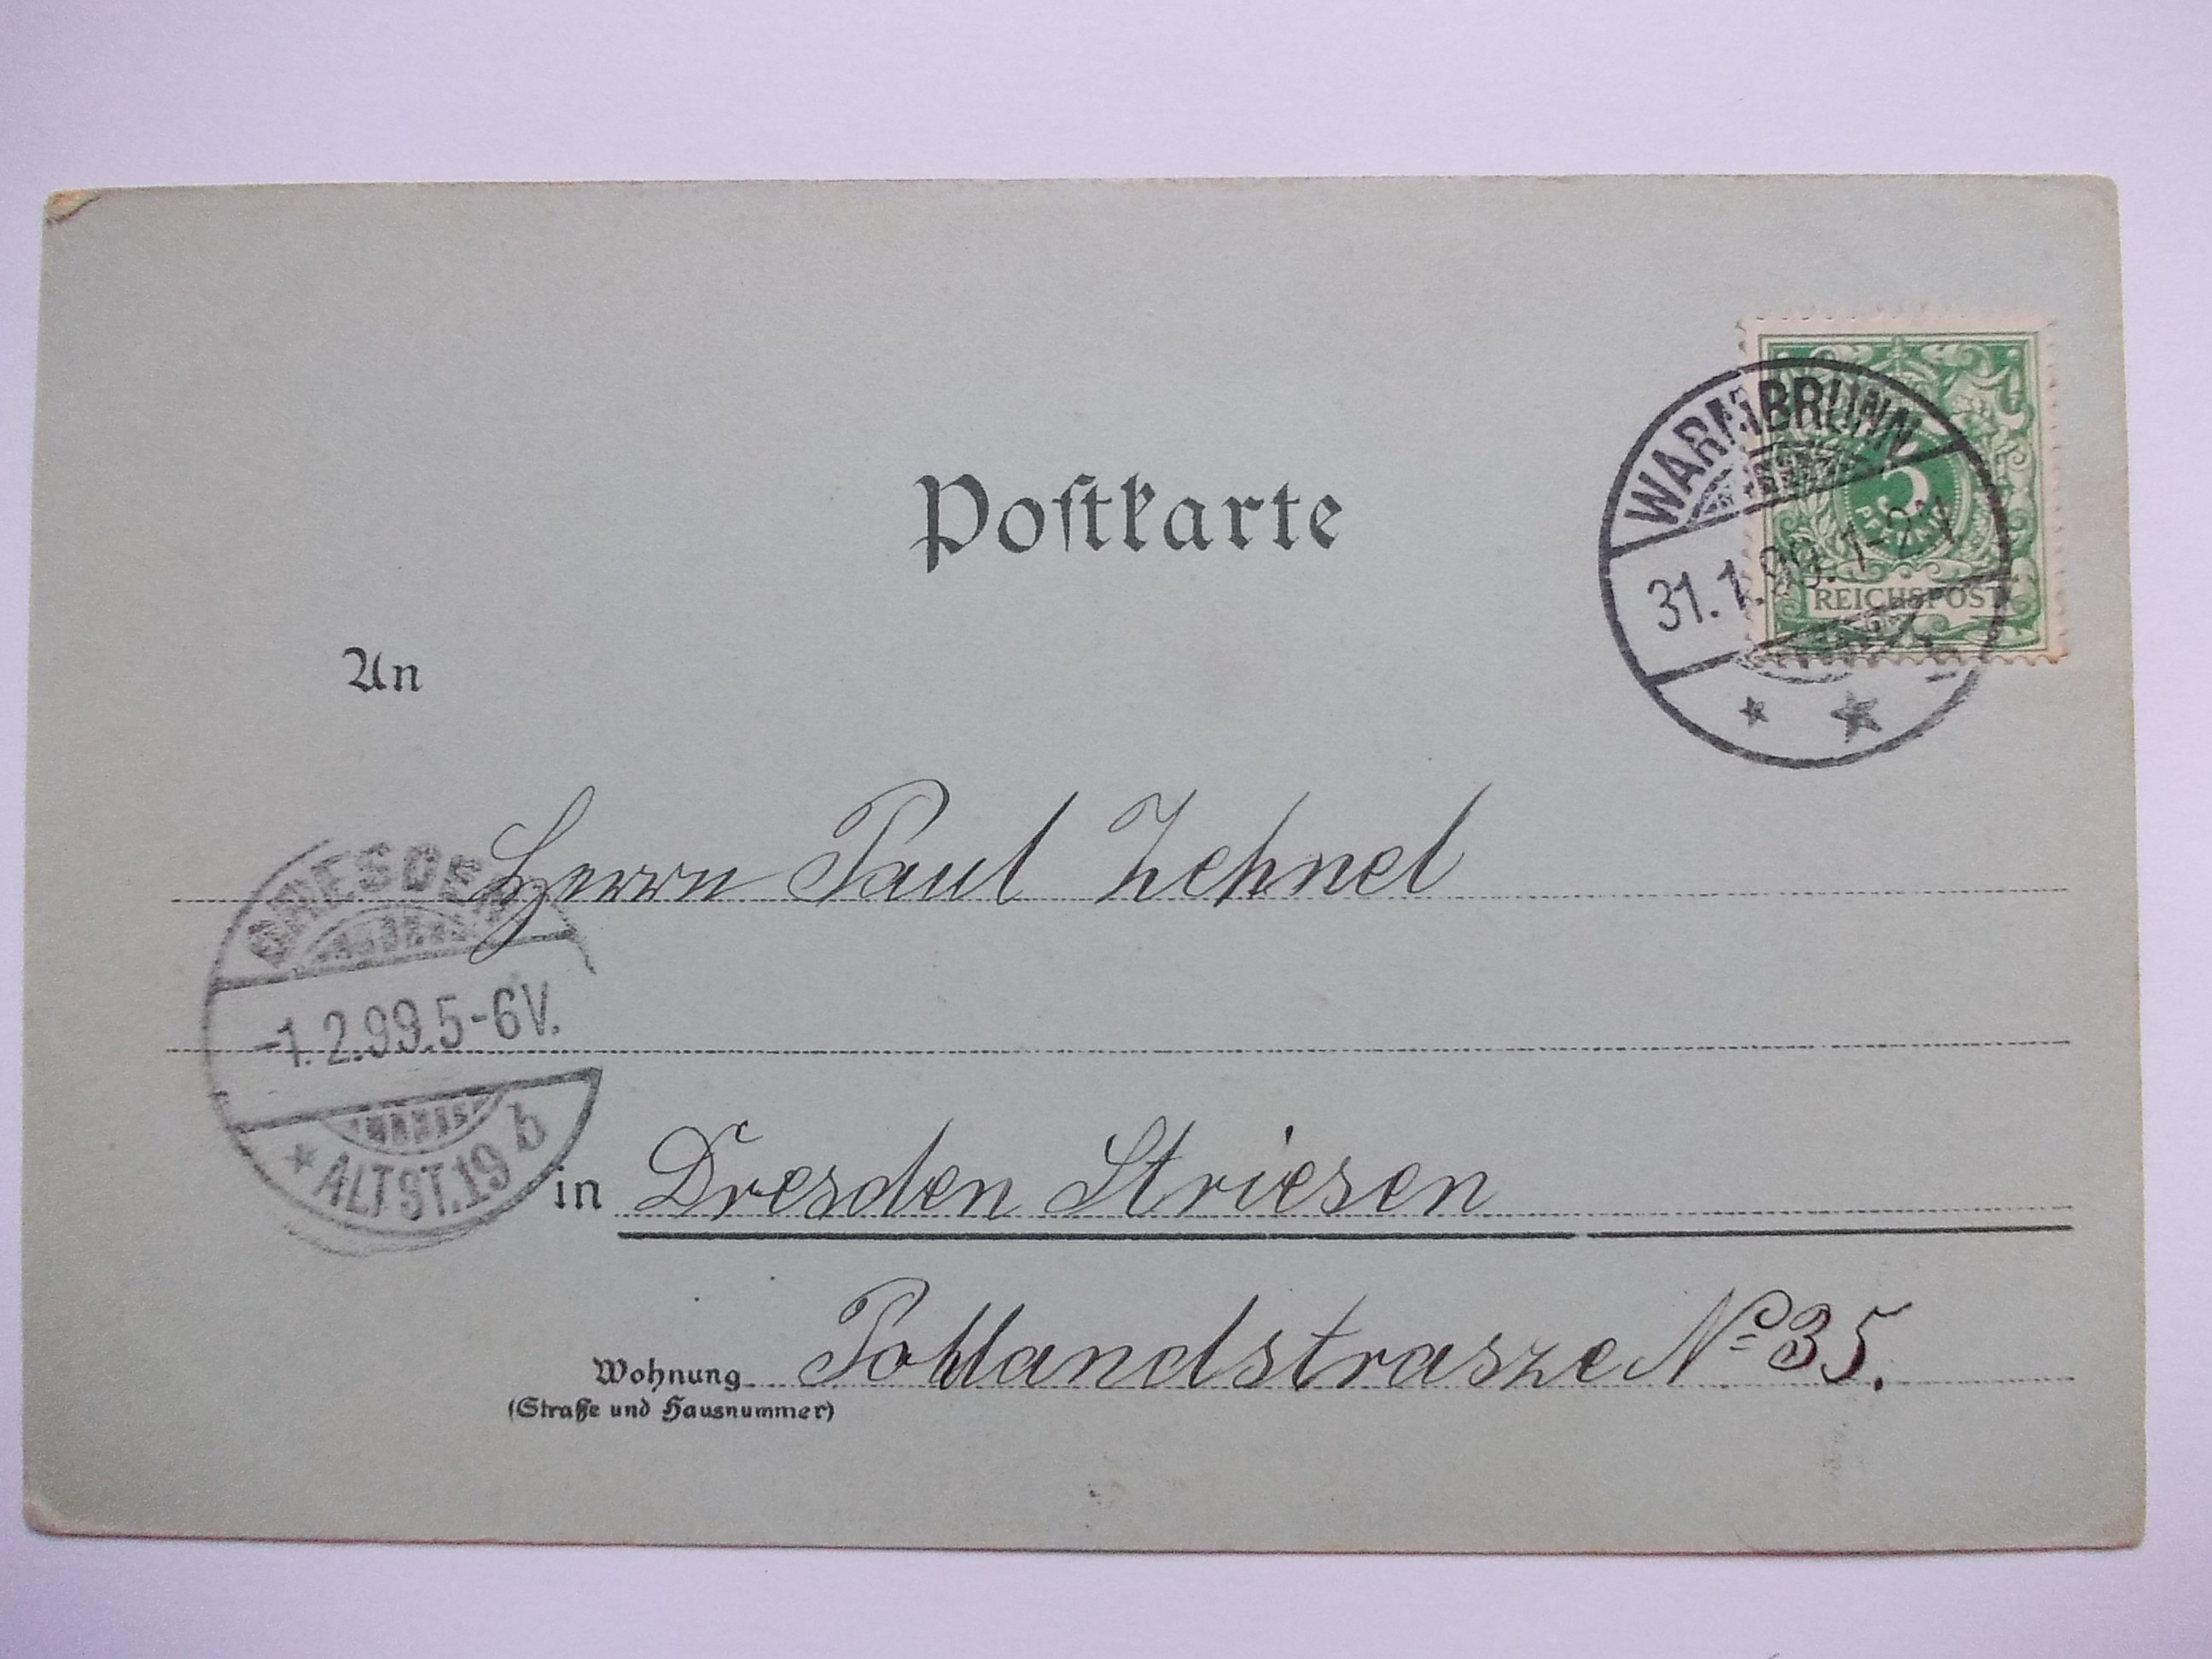 Postkarte
WARMBRUNN
31.1.99.1-2N
5
PFENNIG
REICHSPOST
An
Herrn Paul Zehnel
DRESDEN
-1.2.99.5-6V.
* ALTST.19 b
in Dresden Striesen
Wohnung Pohlandstrasze No 35.
(Straße und Hausnummer)